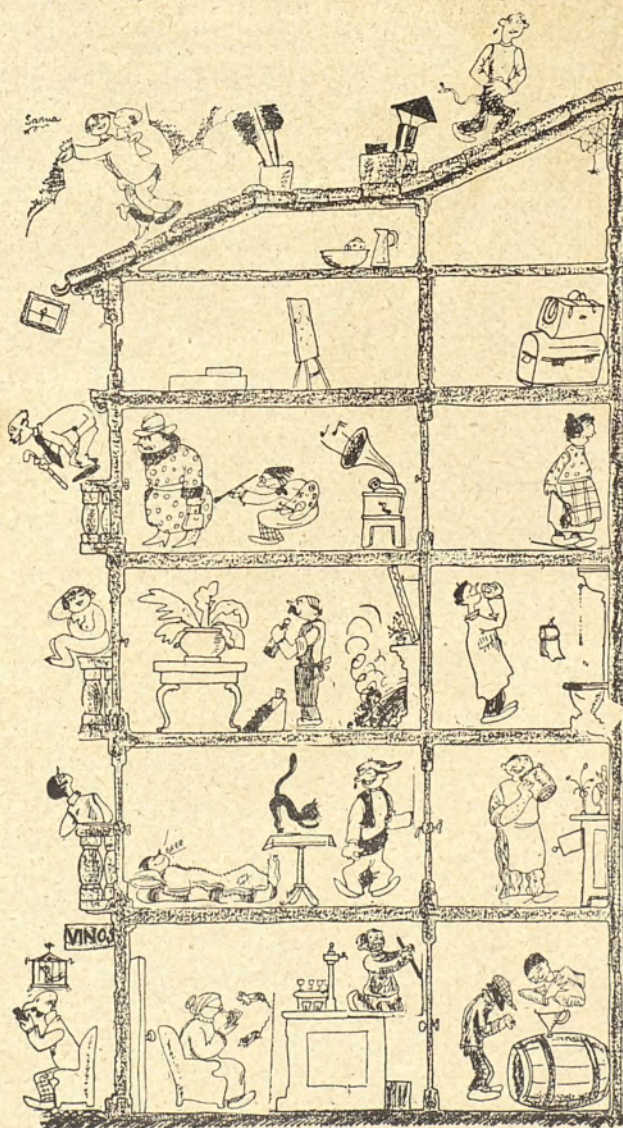 Sanua
VINOS